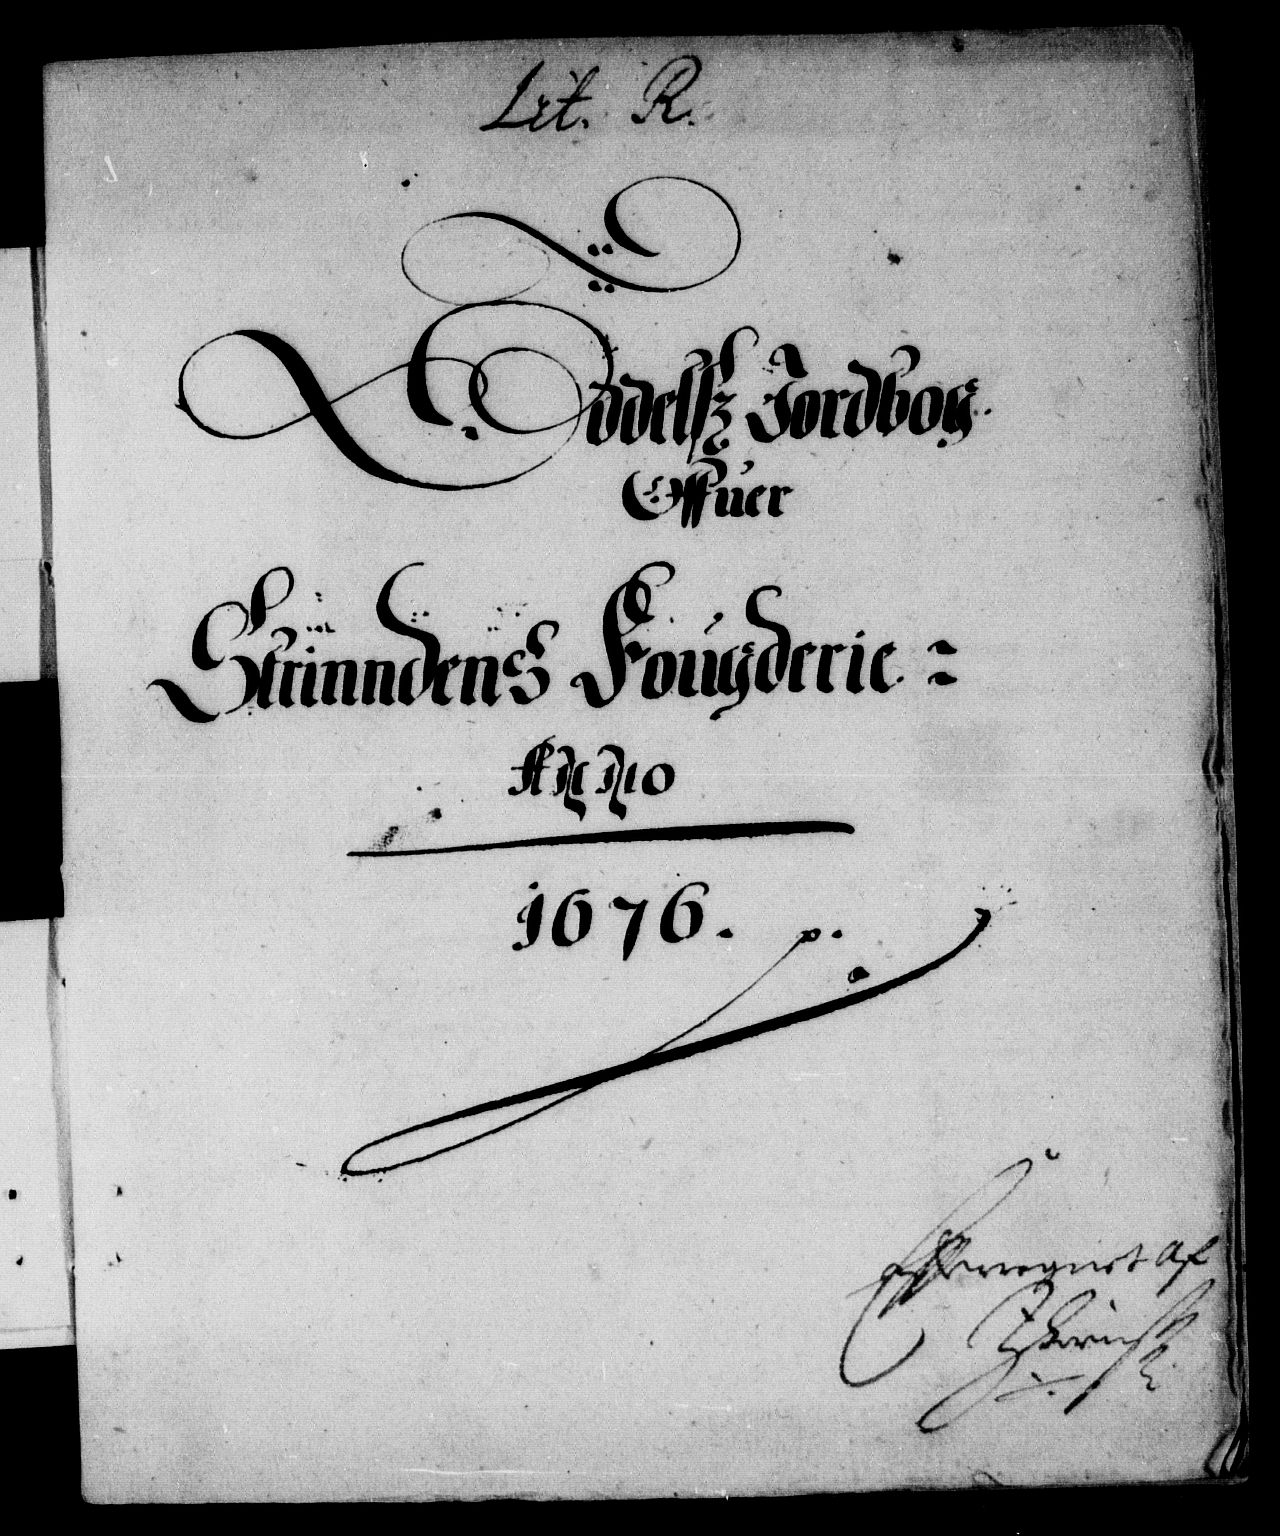 Lit. R.
Oddelsz Jordbog
Offuer
Strinndens Fougderie
Anno
1676.
Efterregnet af